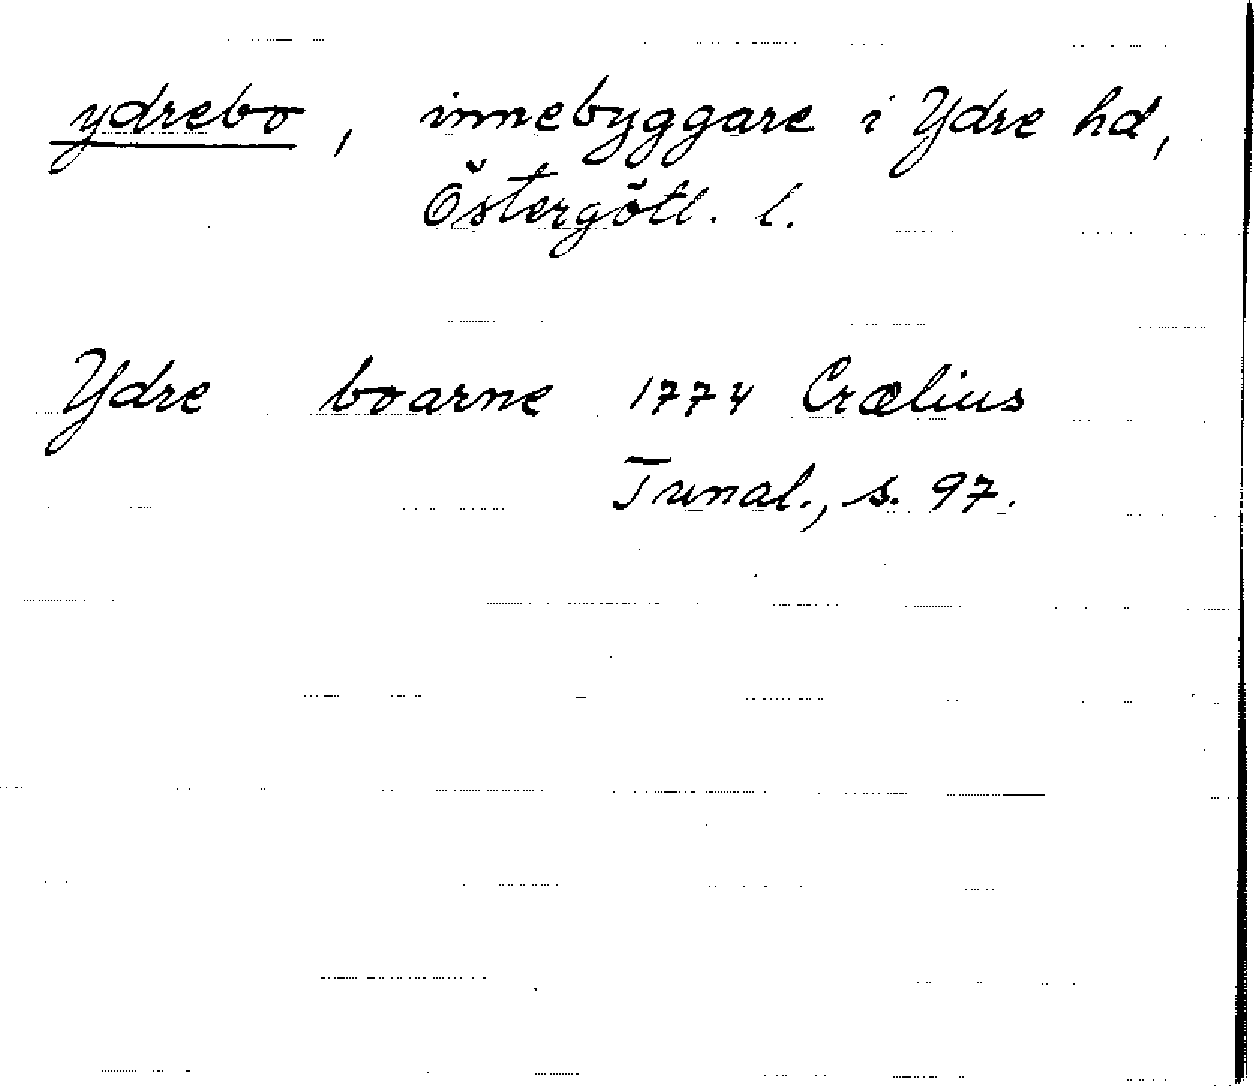 ydrebo, innebyggare i Ydre hd,
Östergötl. l.
Ydre boarne 1774 Crælius
Tunal., s. 97.